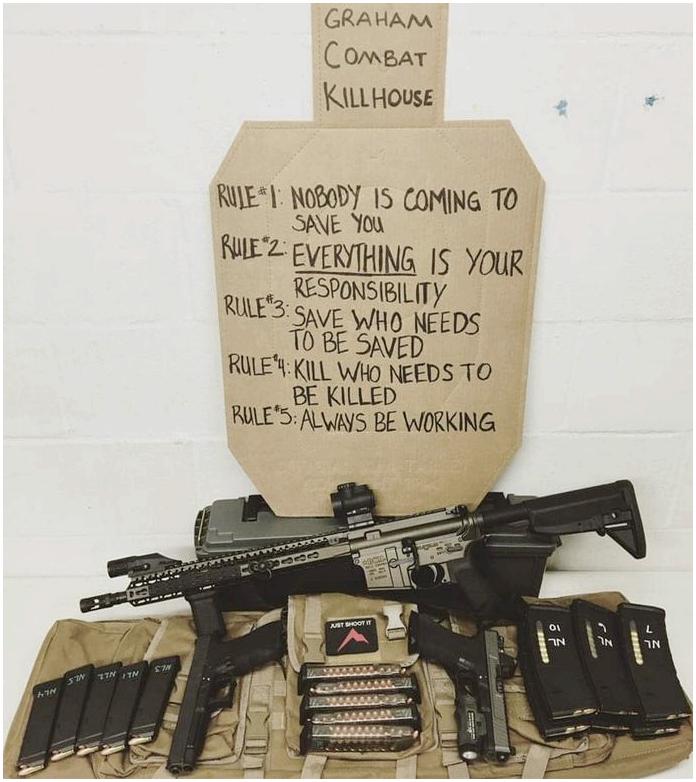 GRAHAM
COMBAT
KILLHOUSE
RULE #1: NOBODY IS COMING TO
SAVE YOU
RULE #2: EVERYTHING IS YOUR
RESPONSIBILITY
RULE #3: SAVE WHO NEEDS
TO BE SAVED
RULE #4: KILL WHO NEEDS TO
BE KILLED
RULE #5: ALWAYS BE WORKING
JUST SHOOT IT
NL4
NL5
NL2
NL1
NL3
NL
10
NL
6
NL
7